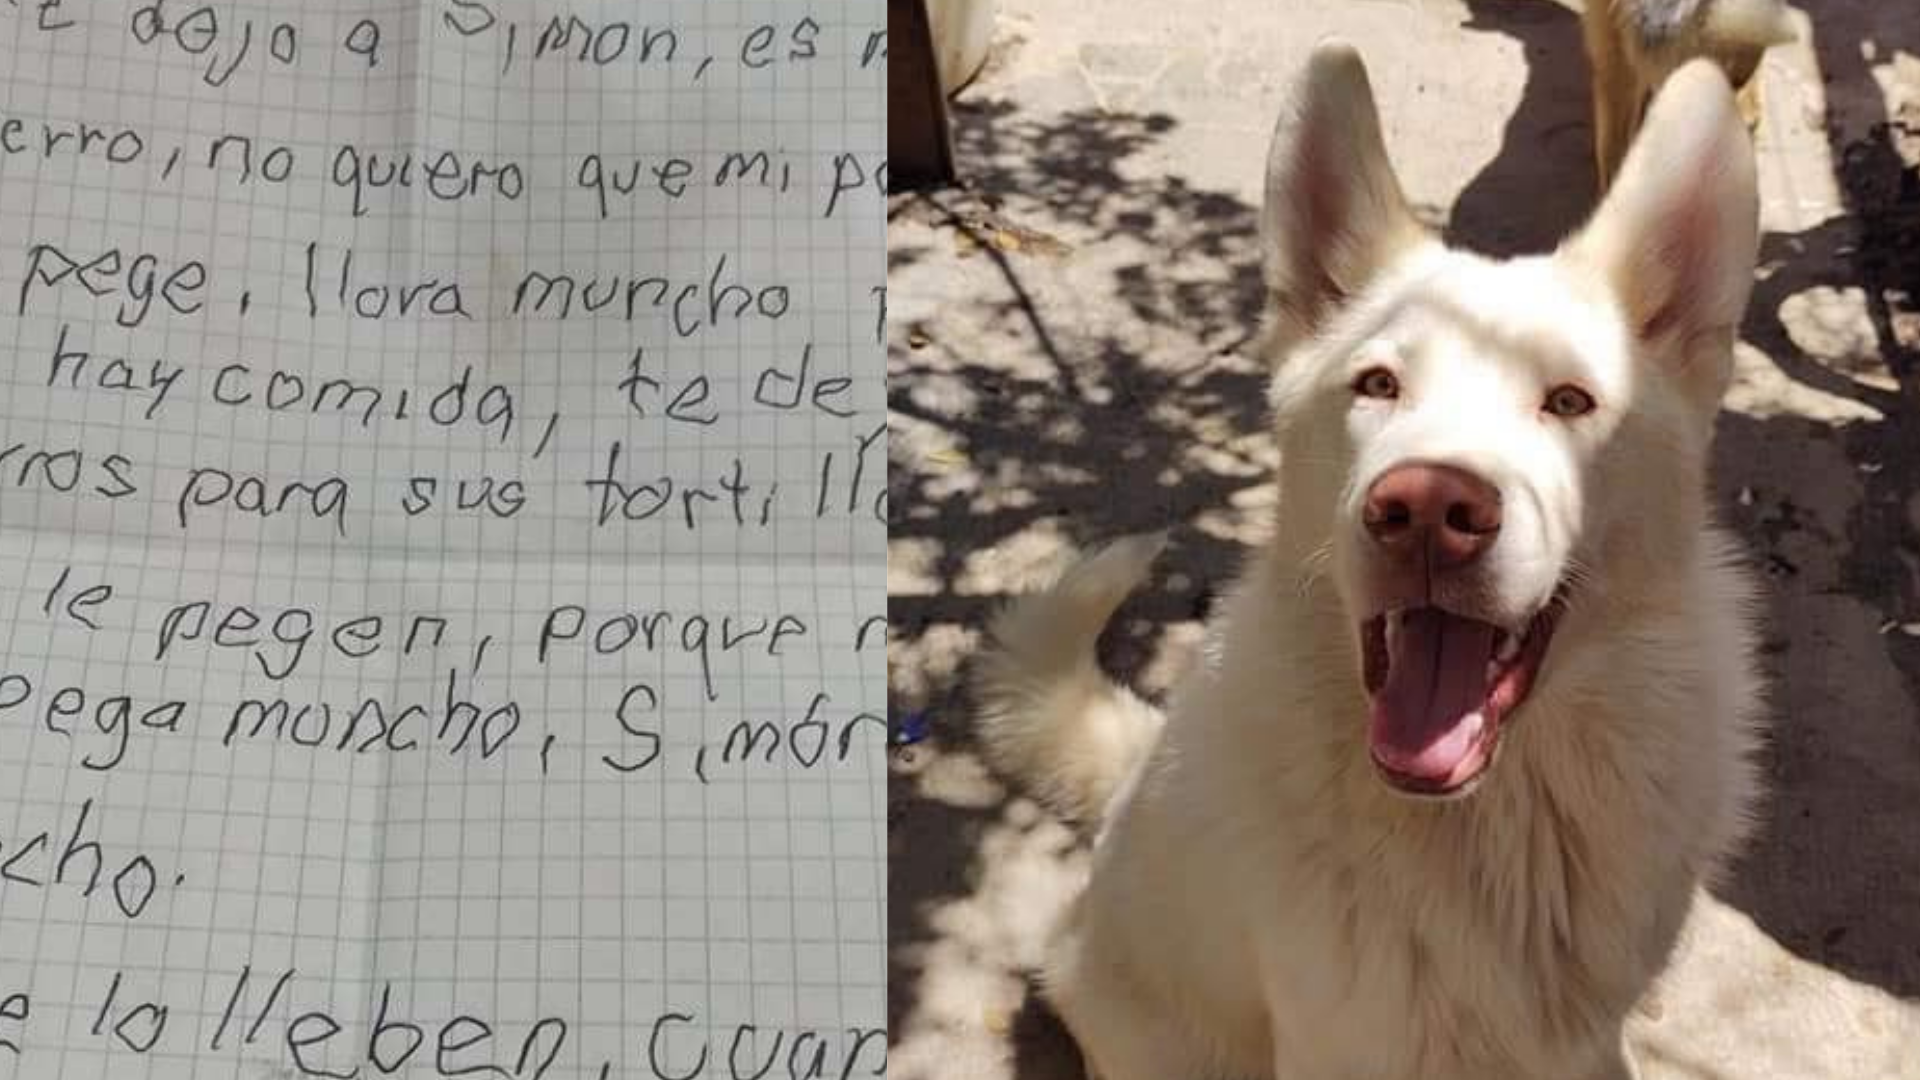 te dejo a Simon, es
erro, no quiero que mi
pege, llora muncho
hay comida, te de
rros para sus tortill
le pegen, porque
pega muncho, Simón
cho.
e lo lleben, cuan